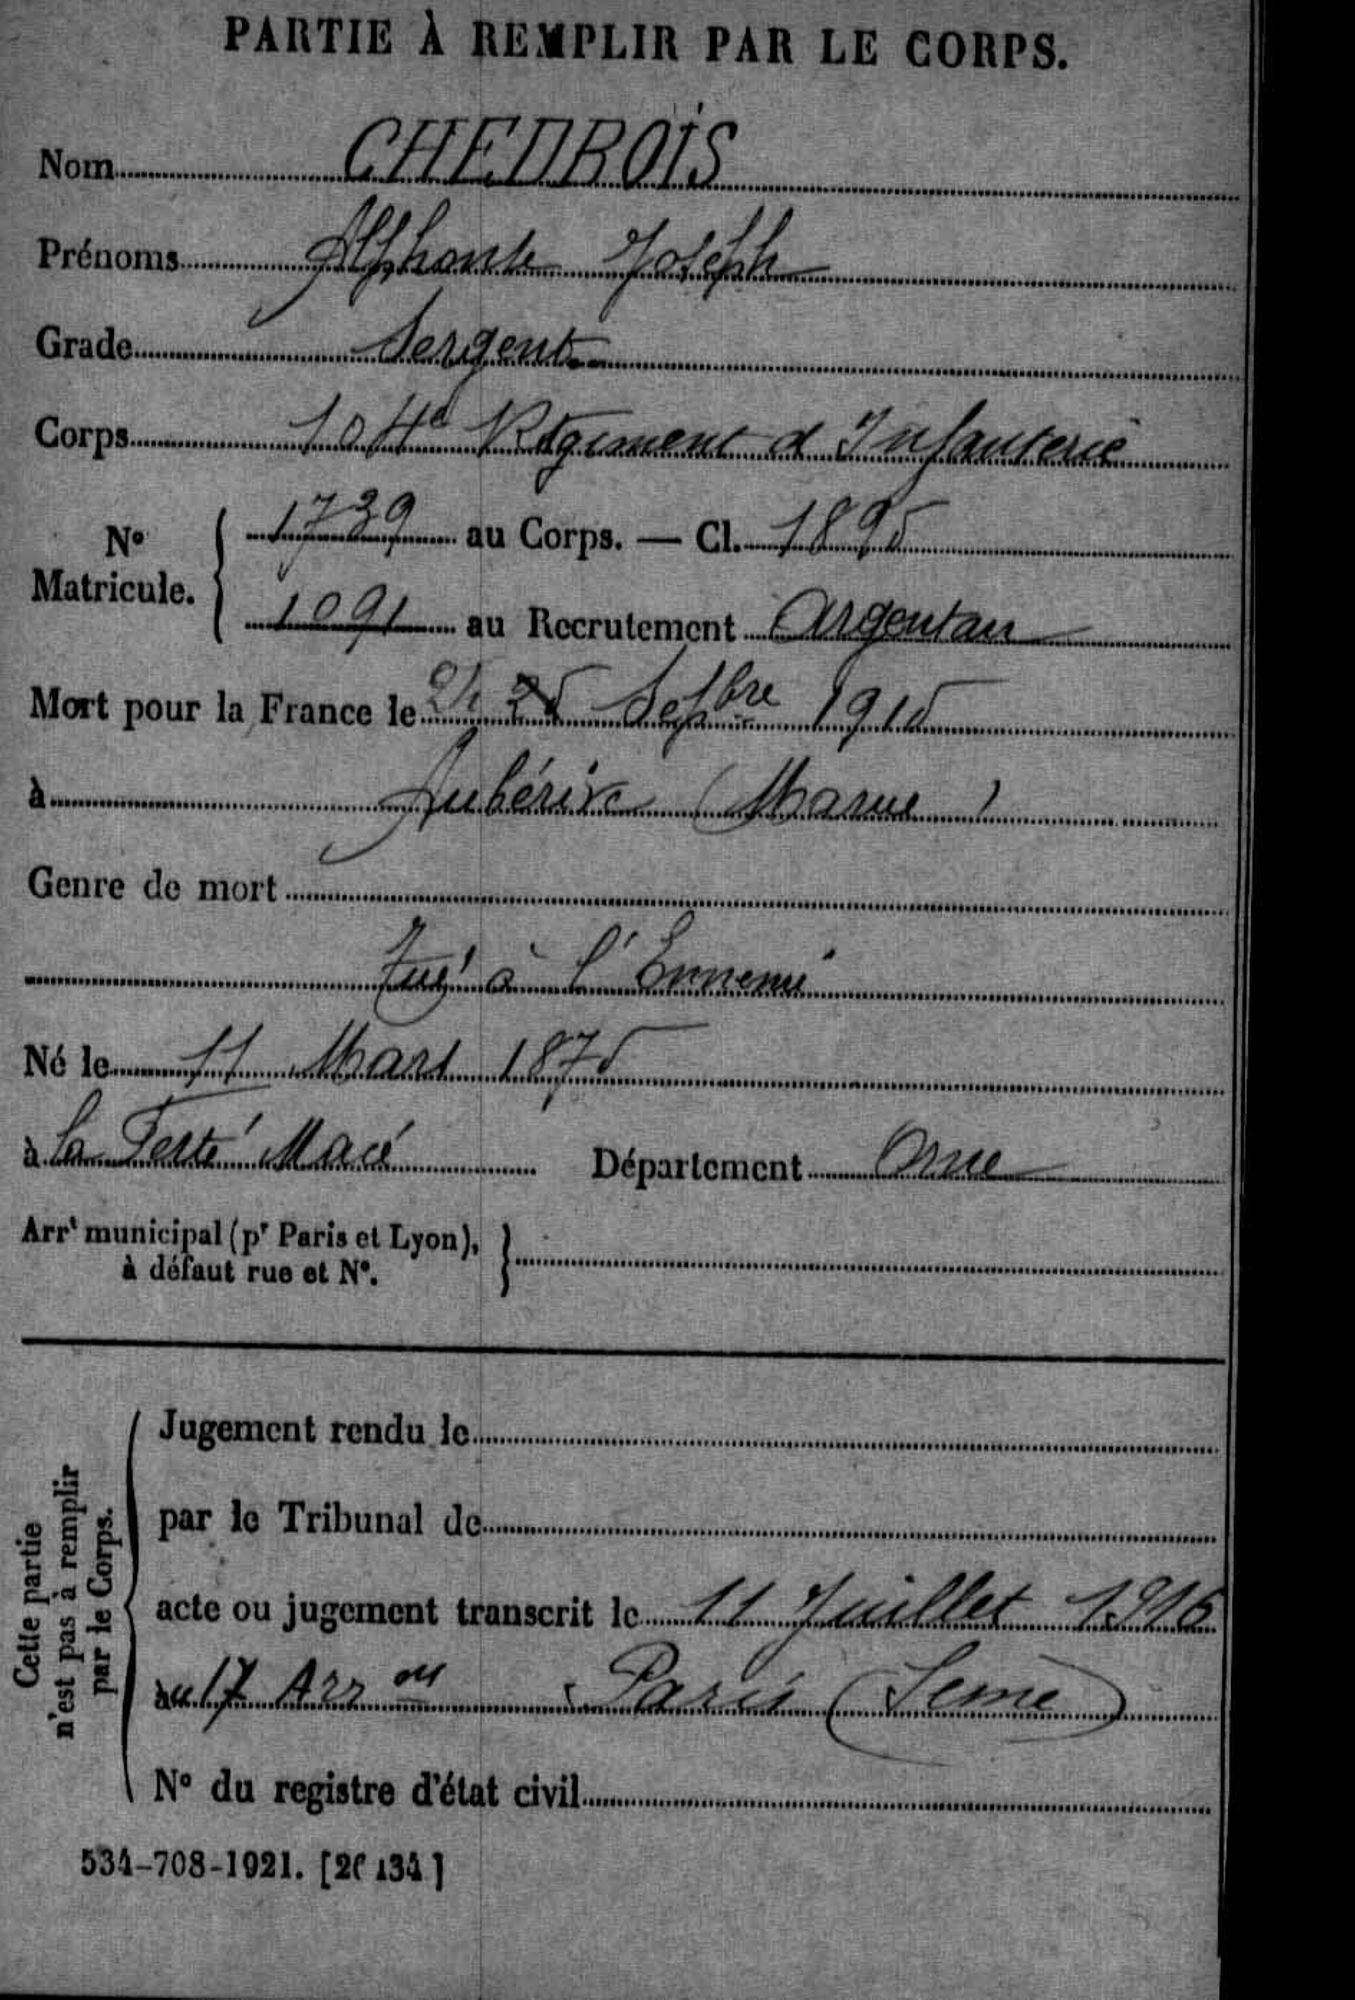 PARTIE À REMPLIR PAR LE CORPS.
Nom CHEDBOIS
Prénoms Alphonse Joseph
Grade Sergent
Corps 104e Régiment d Infanterie
No Matricule. 1739 au Corps. — Cl. 1895
1091 au Recrutement Argentan
Mort pour la France le 25 Sepbre 1915
à Aubérive (Marne)
Genre de mort
Tué à l'Ennemi
Né le 11 Mars 1875
à la Ferté Macé Département Orne
Arrt municipal (pr Paris et Lyon),
à défaut rue et No.
Cette partie
n'est pas à remplir
par le Corps.
Jugement rendu le
par le Tribunal de
acte ou jugement transcrit le 11 Juillet 1916
au 17 Arr Paris (Seine)
No du registre d'état civil
534-708-1921. [26134]